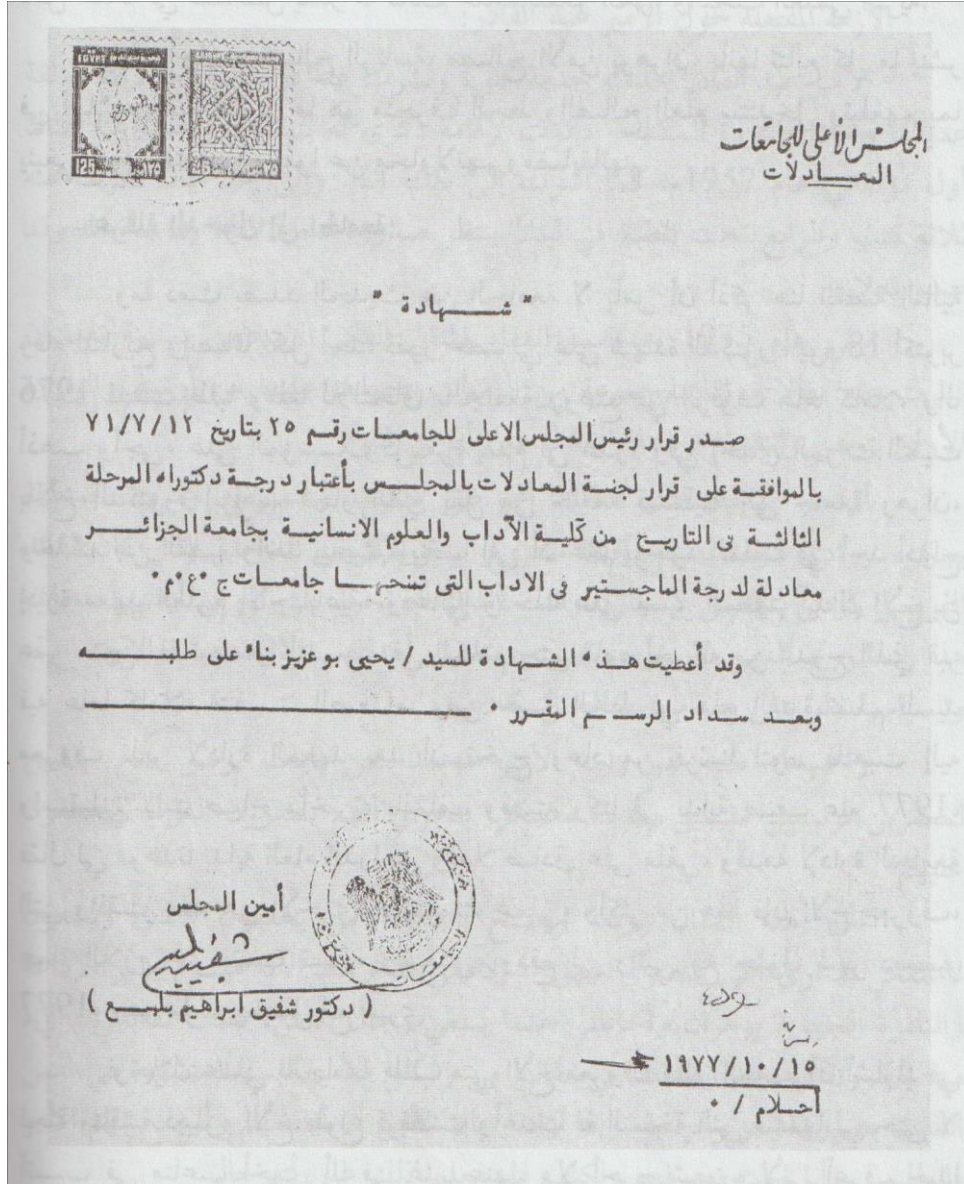 المجلس الاعلى للجامعات
المعـــادلات
" شـــــهادة "
صـدر قرار رئيس المجلس الاعلى للجامعـات رقـم ٢٥ بتاريخ ٧١/٧/١٢
بالموافقـة على قرار لجنـة المعادلات بالمجلـــس بأعتبار درجـة دكتوراه المرحلة
الثالثــة فى التاريـــخ من كليـة الآداب والعلوم الانسانيـة بجامعة الجزائــــر
معادلة لدرجة الماجستـير فى الاداب التى تمنحهــا جامعــات ج ٠ع ٠م ٠
وقد أعطيت هـذه الشهـادة للسيد / يحيى بو عزيز بناء على طلبــــــه
وبعـد سـداد الرســـم المقـرر ٠
أمين المجلس
( دكتور شفيق ابراهيم بلبـــع )
١٩٧٧/١٠/١٥
أحـلام / ٠